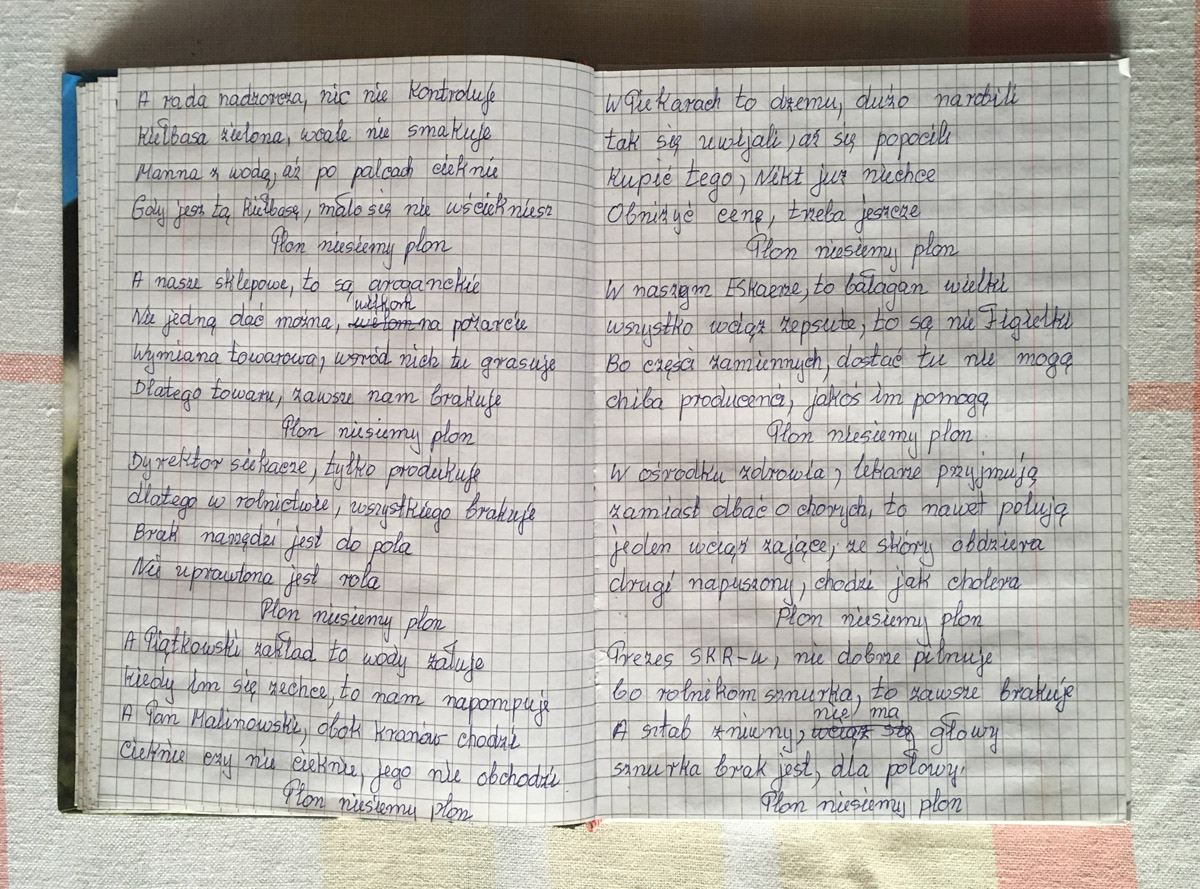 A rada nadzorcza, nic nie kontroluje
Kiełbasa zielona, wcale nie smakuje
Manna z wodą, aż po palcach cieknie
Gdy jesz tą kiełbasę, mało się nie wściekniesz
Plon niesiemy plon
A nasze sklepowe, to są aroganckie
wilkom
Nie jedną dać można, na pożarcie
Wymiana towarowa, wśród nich tu grasuje
Dlatego towaru, zawsze nam brakuje
Plon niesiemy plon
Dyrektor siekacze, tylko produkuje
dlatego w rolnictwie, wszystkiego brakuje
Brak narzędzi jest do pola
Nie uprawiona jest rola
Plon niesiemy plon
A Piątkowski zakład to wody żałuje
kiedy im się zechce, to nam napompuje
A Pan Malinowski, obok kranów chodzi
Cieknie czy nie cieknie, jego nie obchodzi
Plon niesiemy plon
W Piekarach to dżemu, dużo narobili
tak się uwijali, aż się popocili
Kupić tego, Nikt już niechce
Obniżyć cenę, trzeba jeszcze
Plon niesiemy plon
W naszym Eskaerze, to bałagan wielki
wszystko wciąż zepsute, to są nie Figielki
Bo części zamiennych, dostać tu nie mogą
chiba producenci, jakoś im pomogą
Plon niesiemy plon
W ośrodku zdrowia, lekarze przyjmują
zamiast dbać o chorych, to nawet polują
jeden wciąż zające, ze skóry obdziera
drugi napuszony, chodzi jak cholera
Plon niesiemy plon
Prezes SKR-u, nie dobrze pilnuje
bo rolnikom sznurka, to zawsze brakuje
nie ma
A sztab żniwny, wciąż się głowy
sznurka brak jest, dla połowy.
Plon niesiemy plon